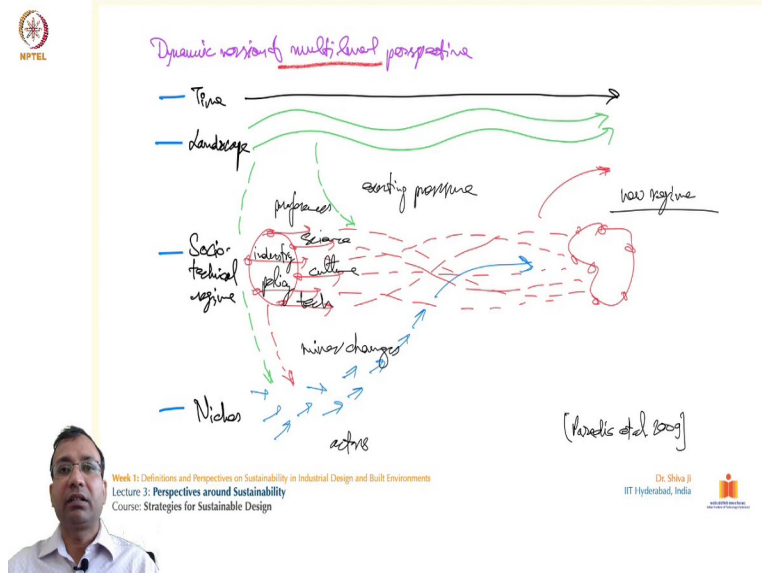 NPTEL
Dynamic version of multilevel perspective
Time
Landscape
exerting pressure
new regime
preferences
science
industry
Socio-
technical
regime
culture
policy
tech
minor changes
Niches
actors
et al 2009]
Week 1: Definitions and Perspectives on Sustainability in Industrial Design and Built Environments
Lecture 3: Perspectives around Sustainability
Course: Strategies for Sustainable Design
Dr. Shiva Ji
IIT Hyderabad, India